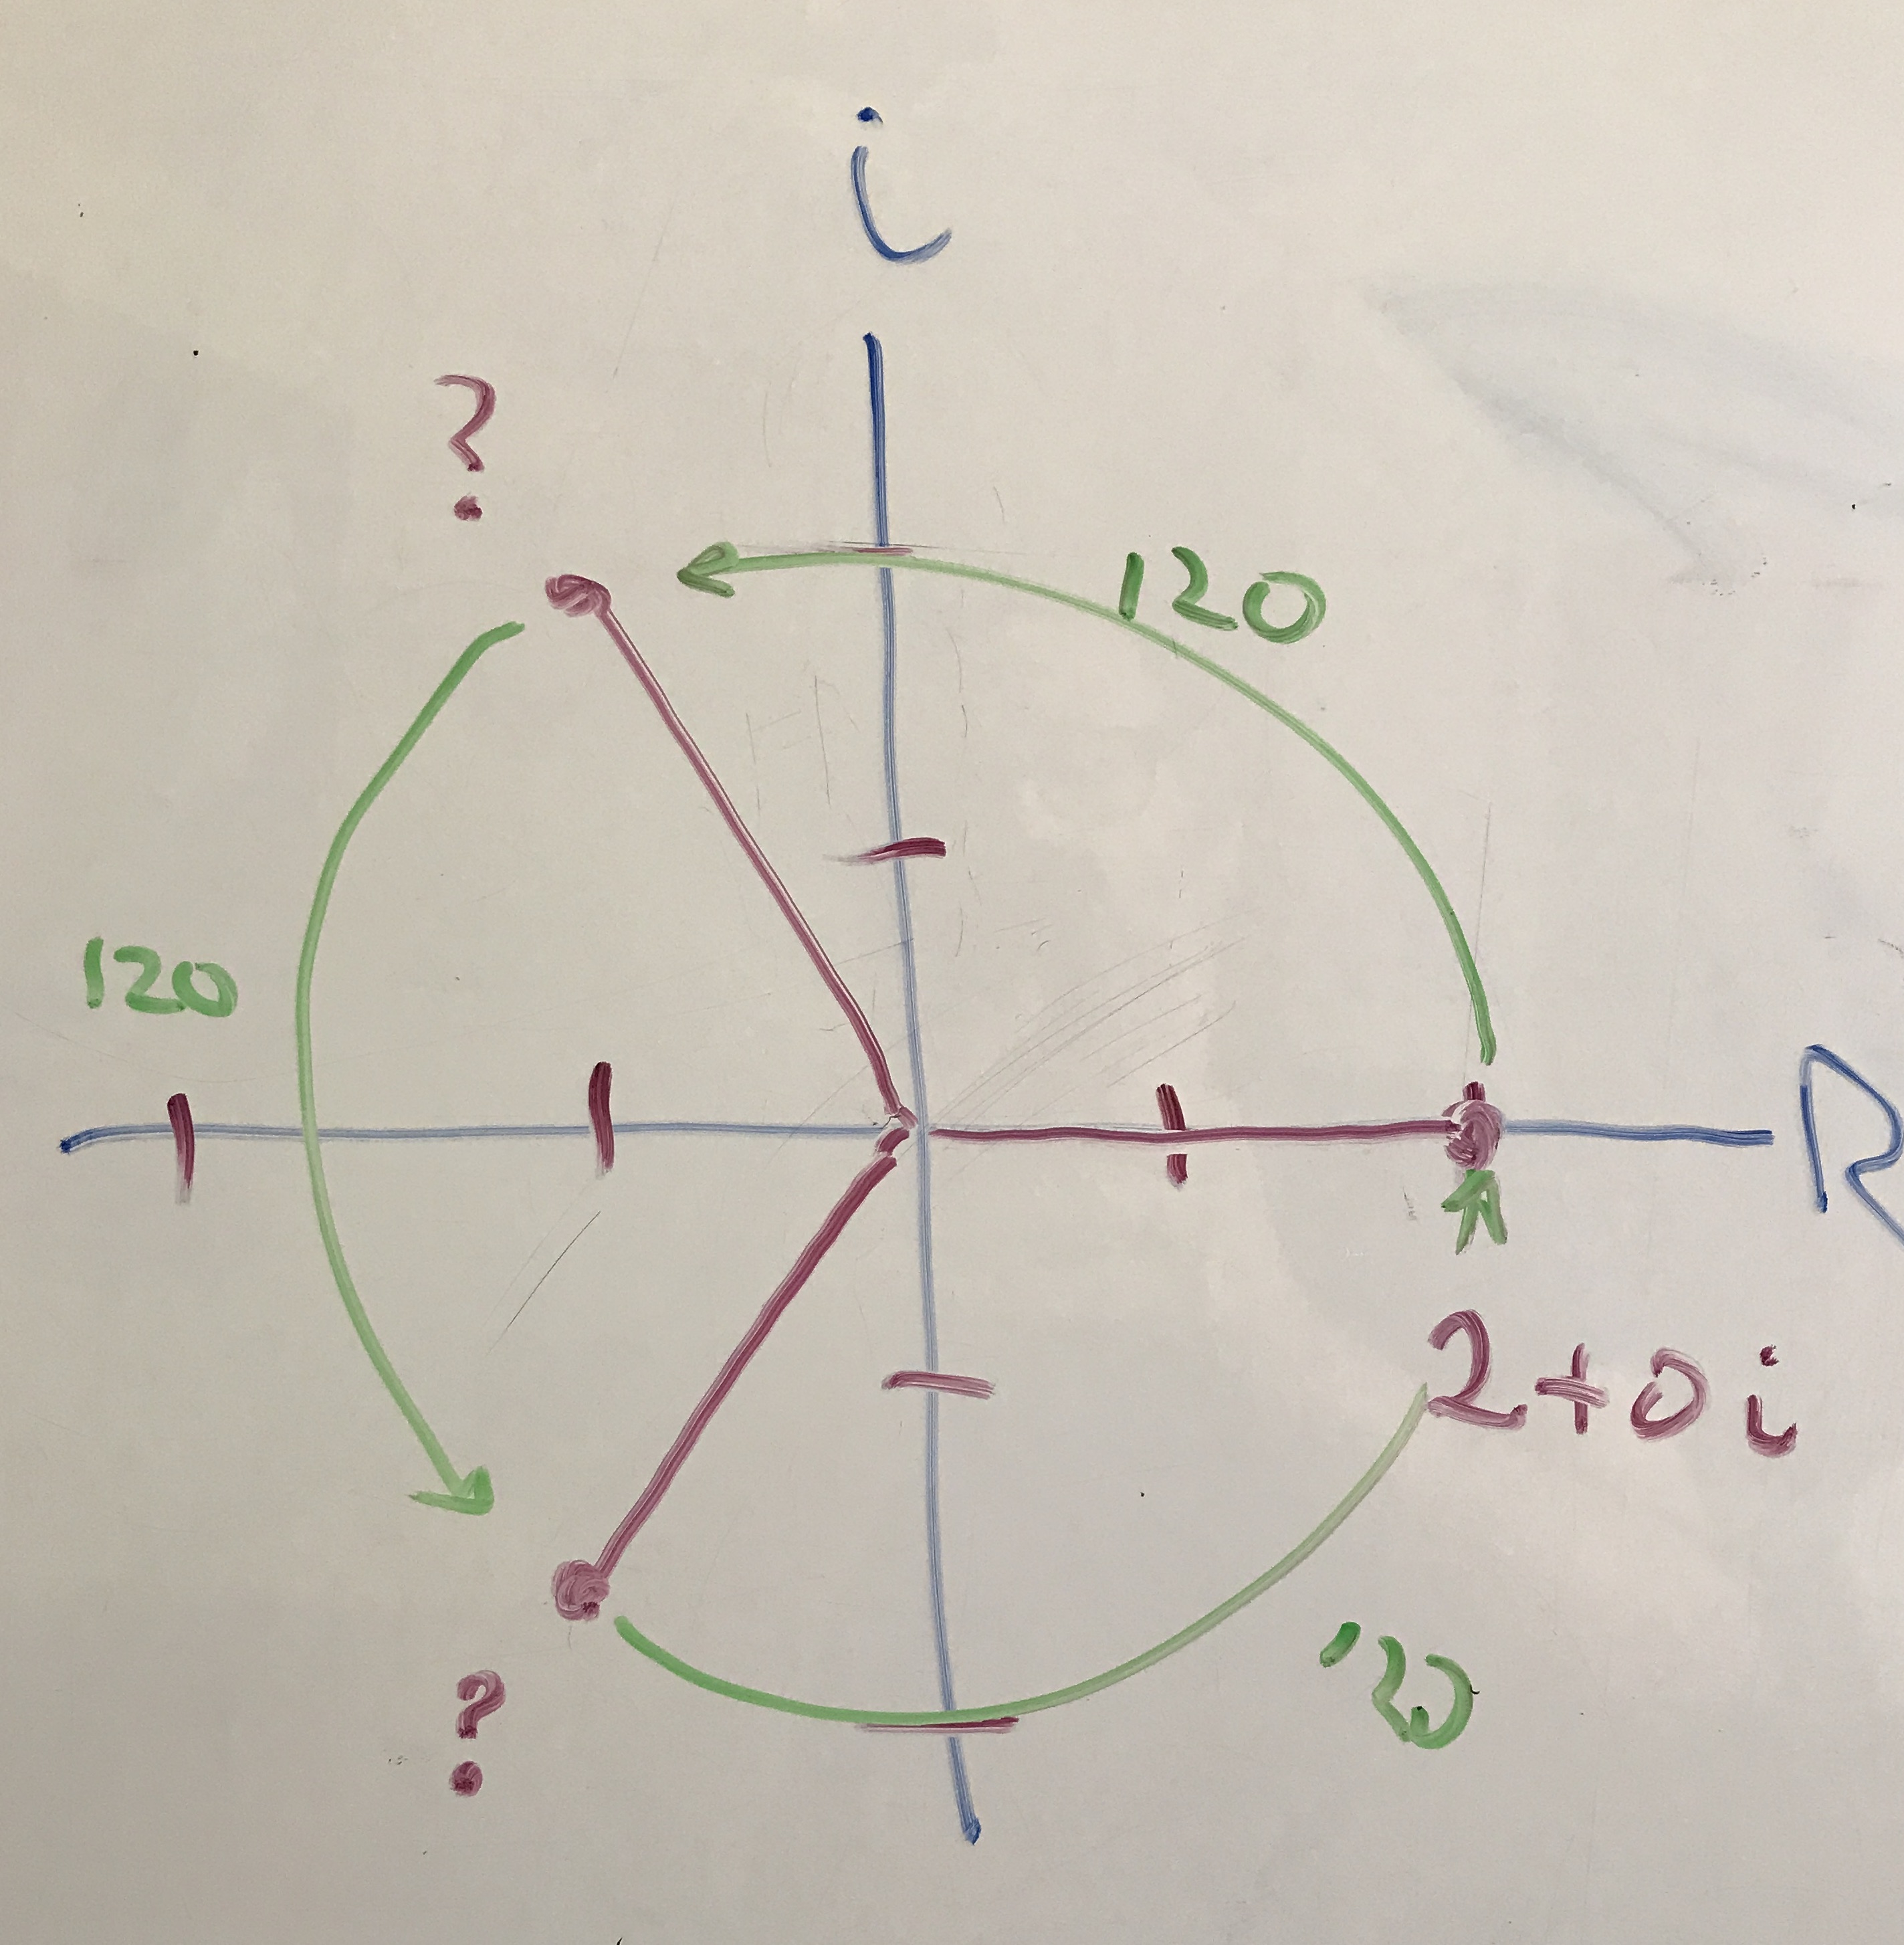 i
?
120
120
R
2+0i
120
?